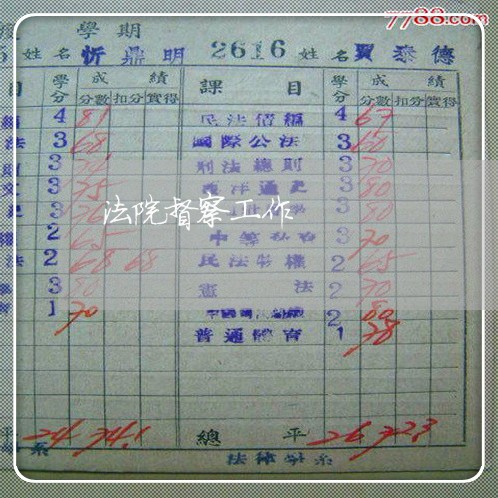 7788.com
學期
5 姓名 忻鼎明 2616 姓名 賈泰德
目 學分 成績 課目 學分 成績
分數 扣分 實得 分數 扣分 實得
4 81 民法債編 4 67
法 3 68 國際公法 3 60
3 刑法總則 3 70
3 75 東洋通史 3 80
3 3 80
法院督察工作
2 65 3 70
法 2 68 68 民法物權 2 65
3 80 憲法 2 70
1 70 2 80
普通體育 1 78
平 24 74.1 總平 26 72.3
系 法律學系